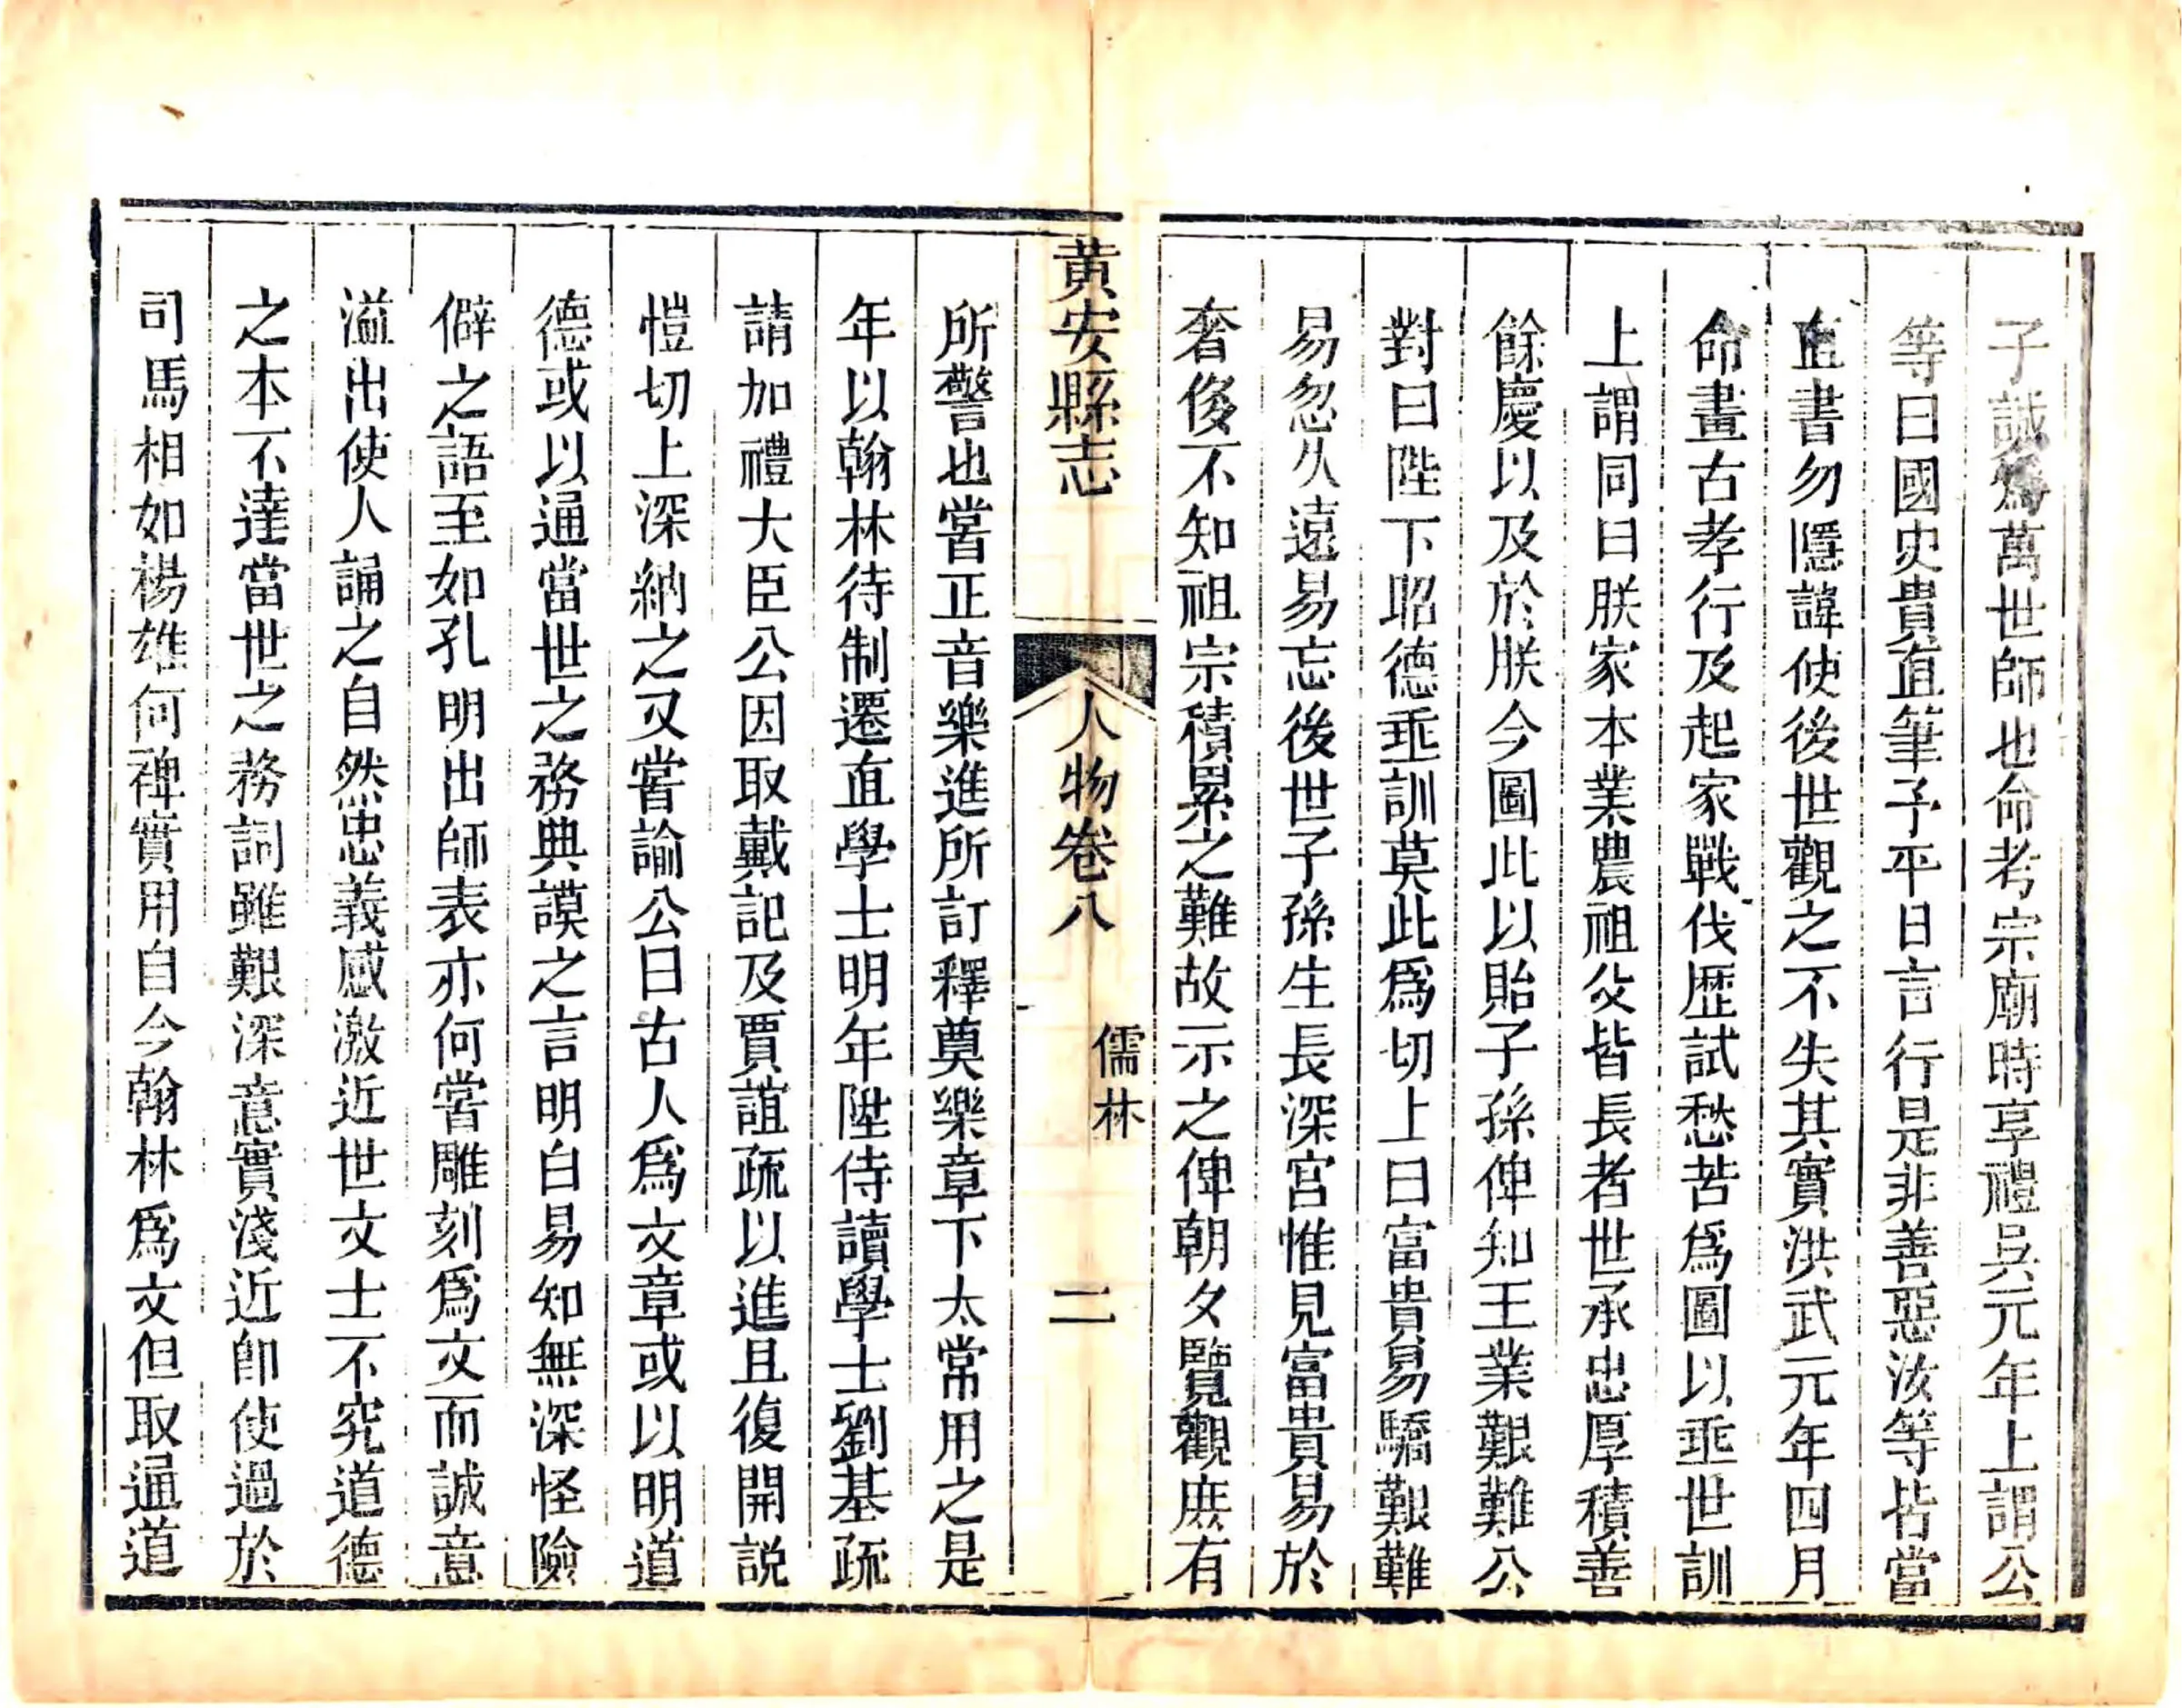 子誠爲萬世師也命考宗廟時享禮吳元年上謂公
等曰國史貴直筆子平日言行是非善惡汝等皆當
直書勿隱諱使後世觀之不失其實洪武元年四月
命畫古孝行及起家戰伐歷試愁苦爲圖以垂世訓
上謂同曰朕家本業農祖父皆長者世承忠厚積善
餘慶以及於朕今圖此以貽子孫俾知王業艱難公
對曰陛下昭德垂訓莫此爲切上曰富貴易驕艱難
易忽久遠易忘後世子孫生長深宮惟見富貴易於
奢侈不知祖宗積累之難故示之俾朝夕覽觀庶有
黃安縣志
人物卷八
儒林
二
所警也嘗正音樂進所訂釋奠樂章下太常用之是
年以翰林待制遷直學士明年陞侍讀學士劉基疏
請加禮大臣公因取戴記及賈誼疏以進且復開説
愷切上深納之又嘗諭公曰古人爲文章或以明道
德或以通當世之務典謨之言明白易知無深怪險
僻之語至如孔明出師表亦何嘗雕刻爲文而誠意
溢出使人誦之自然忠義感激近世文士不究道德
之本不達當世之務詞雖艱深意實淺近即使過於
司馬相如楊雄何裨實用自今翰林爲文但取通道